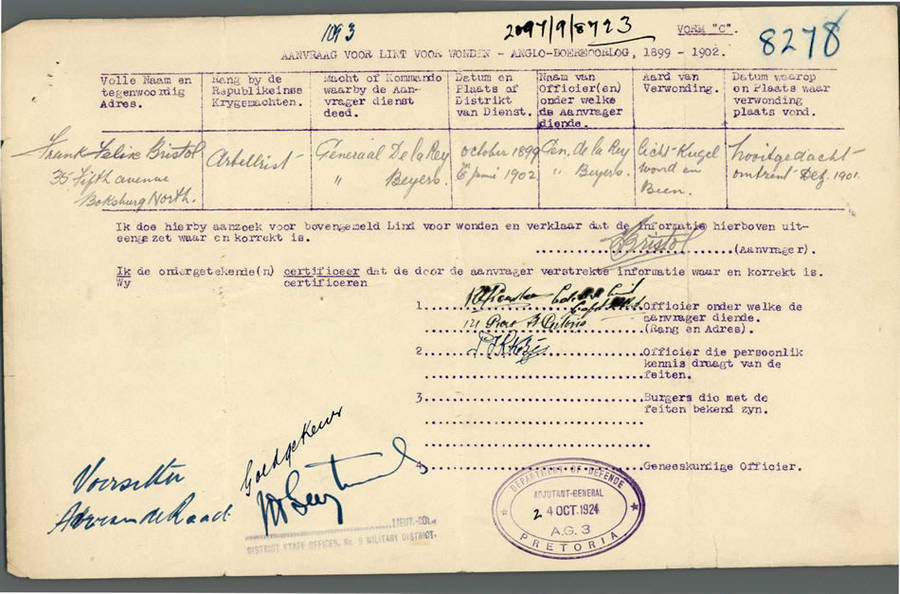 1093
2097/9/8723
VORM "C".
8278
AANVRAAG VOOR LINT VOOR WONDEN - ANGLO-BOEREOORLOG, 1899 - 1902.
Volle Naam en
tegenwoordig
Adres.
Rang by de
Republikeinse
Krygsmachten.
Macht of Kommando
waarby de Aan-
vrager dienst
deed.
Datum en
Plaats of
Distrikt
van Dienst.
Naam van
Officier(en)
onder welke
de Aanvrager
diende.
Aard van
Verwonding.
Datum waarop
en Plaats waar
verwonding
plaats vond.
Frank Felix Bristol
35 Fifth avenue
Boksburg North.
Generaal De la Rey
" Beyers.
October 1899
Junie 1902
Gen. de la Rey
" Beyers.
Licht-Kugel
wond en
Been.
Nooitgedacht
omtrent Des. 1901.
Ik doe hierby aanzoek voor bovengemeld Lint voor wonden en verklaar dat de informatie hierboven uit-
eengezet waar en korrekt is.
Bristol (Aanvrager).
Ik de ondergetekende(n) certificeer dat de door de aanvrager verstrekte informatie waar en korrekt is.
Wy certificeren
1. Officier onder welke de
aanvrager diende.
(Rang en Adres).
2. Officier die persoonlik
kennis draagt van de
feiten.
3. Burgers die met de
feiten bekend zyn.
4. Geneeskundige Officier.
Goedgekeur
Voorsitter
Adviserende Raad
LIEUT-COL.
DISTRICT STAFF OFFICER, No. 9 MILITARY DISTRICT.
DEPARTMENT OF DEFENCE
ADJUTANT-GENERAL
24 OCT. 1924
A.G. 3
PRETORIA